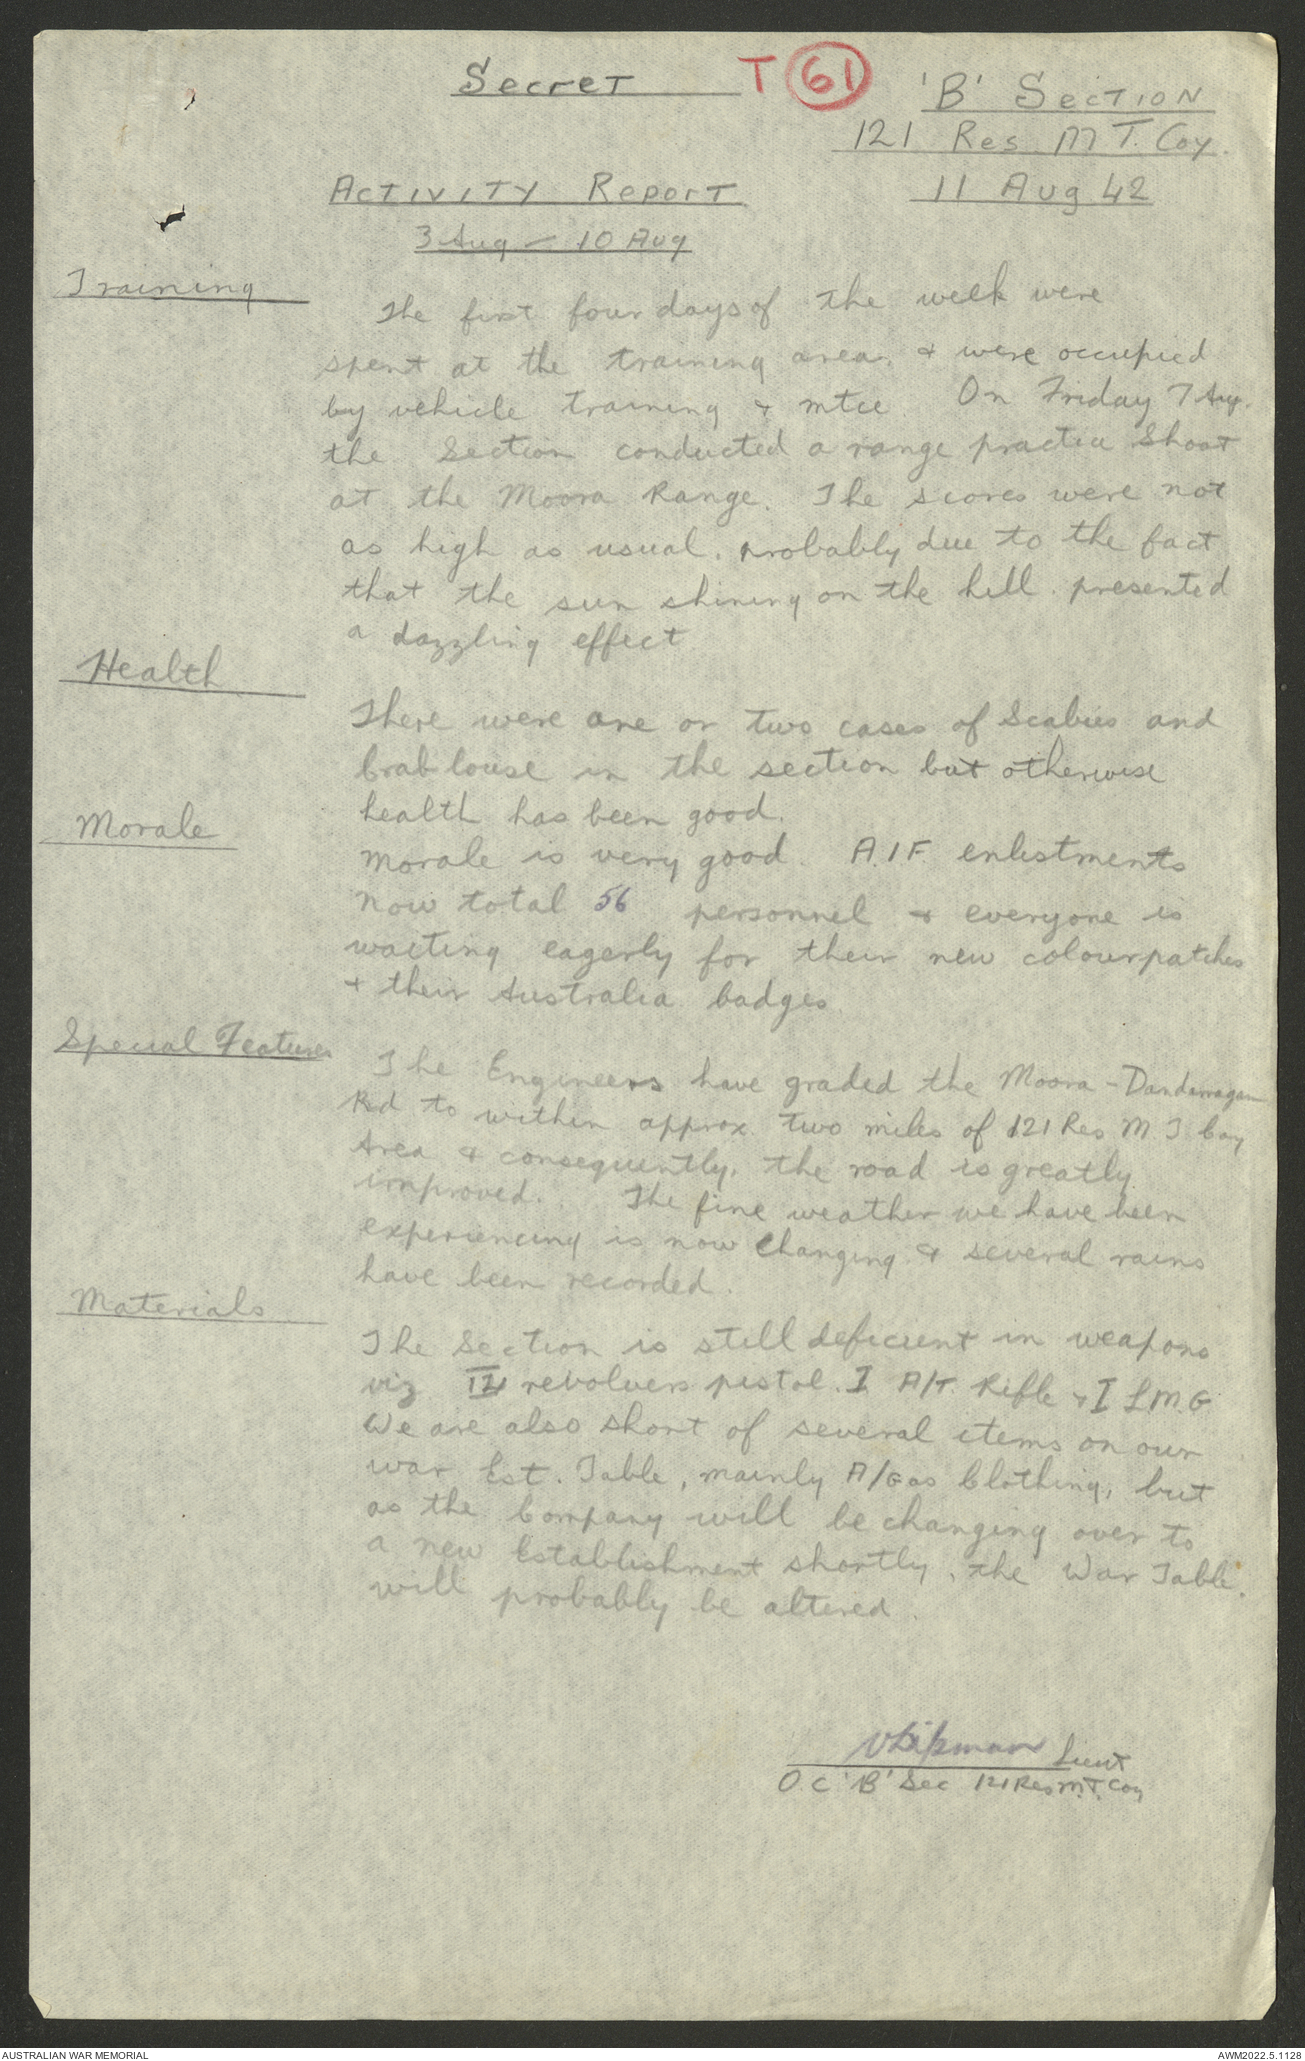 Secret
T 61
'B' Section
121 Res M T. Coy.
11 Aug 42
Activity Report
3 Aug – 10 Aug
Training
The first four days of the week were
spent at the training area, & were occupied
by vehicle training & mtce. On Friday 7 Aug.
the Section conducted a range practice shoot
at the Moora Range. The scores were not
as high as usual, probably due to the fact
that the sun shining on the hill presented
a dazzling effect
Health
There were one or two cases of Scabies and
Crab louse in the section but otherwise
health has been good.
Morale
Morale is very good. A.I.F. enlistments
now total 56 personnel & everyone is
waiting eagerly for their new colourpatches
& their Australia badges
Special Features
The Engineers have graded the Moora – Dandarragan
Rd to within approx. two miles of 121 Res M T Coy
Area & consequently, the road is greatly
improved. The fine weather we have been
experiencing is now changing & several rains
have been recorded.
Materials
The Section is still deficient in weapons
viz revolvers pistol. I A/T. Rifle & I L.M.G
We are also short of several items on our
War Est. Table, mainly A/Gas Clothing, but
as the Company will be changing over to
a new Establishment shortly, the War Table.
will probably be altered.
Lieut
O.C 'B' Sec 121 Res M.T. Coy
AUSTRALIAN WAR MEMORIAL
AWM2022.5.1128